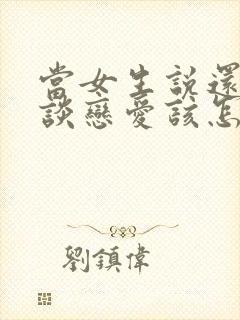 當女生說還
談戀愛該怎
劉鎮偉